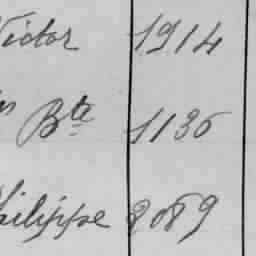 Victor 1914
Bte 1136
Philippe 2089